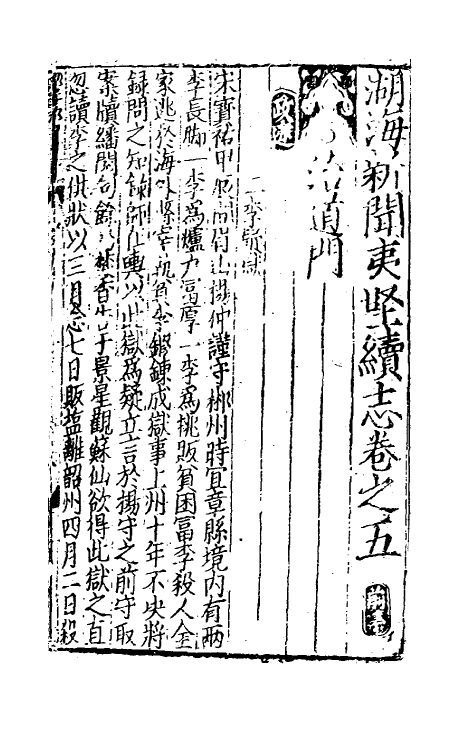 湖海新聞夷堅續志卷之五
治道門
政道
二李冤獄
宋寶祐甲 楊仲謹守郴州時宜章縣境內有兩
李長脚一李為爐力富厚一李為挑販貧困富李殺人全
家逃於海外縣宰執貧李鍛鍊成獄事上州十年不決將
錄問之知錄師仕輿以此獄為疑立言於揚守之前守取
案牘繙閱旬餘 香告于景星觀蘇仙欲得此獄之直
忽讀李之供狀以三月念七日販塩離韶州四月二日殺